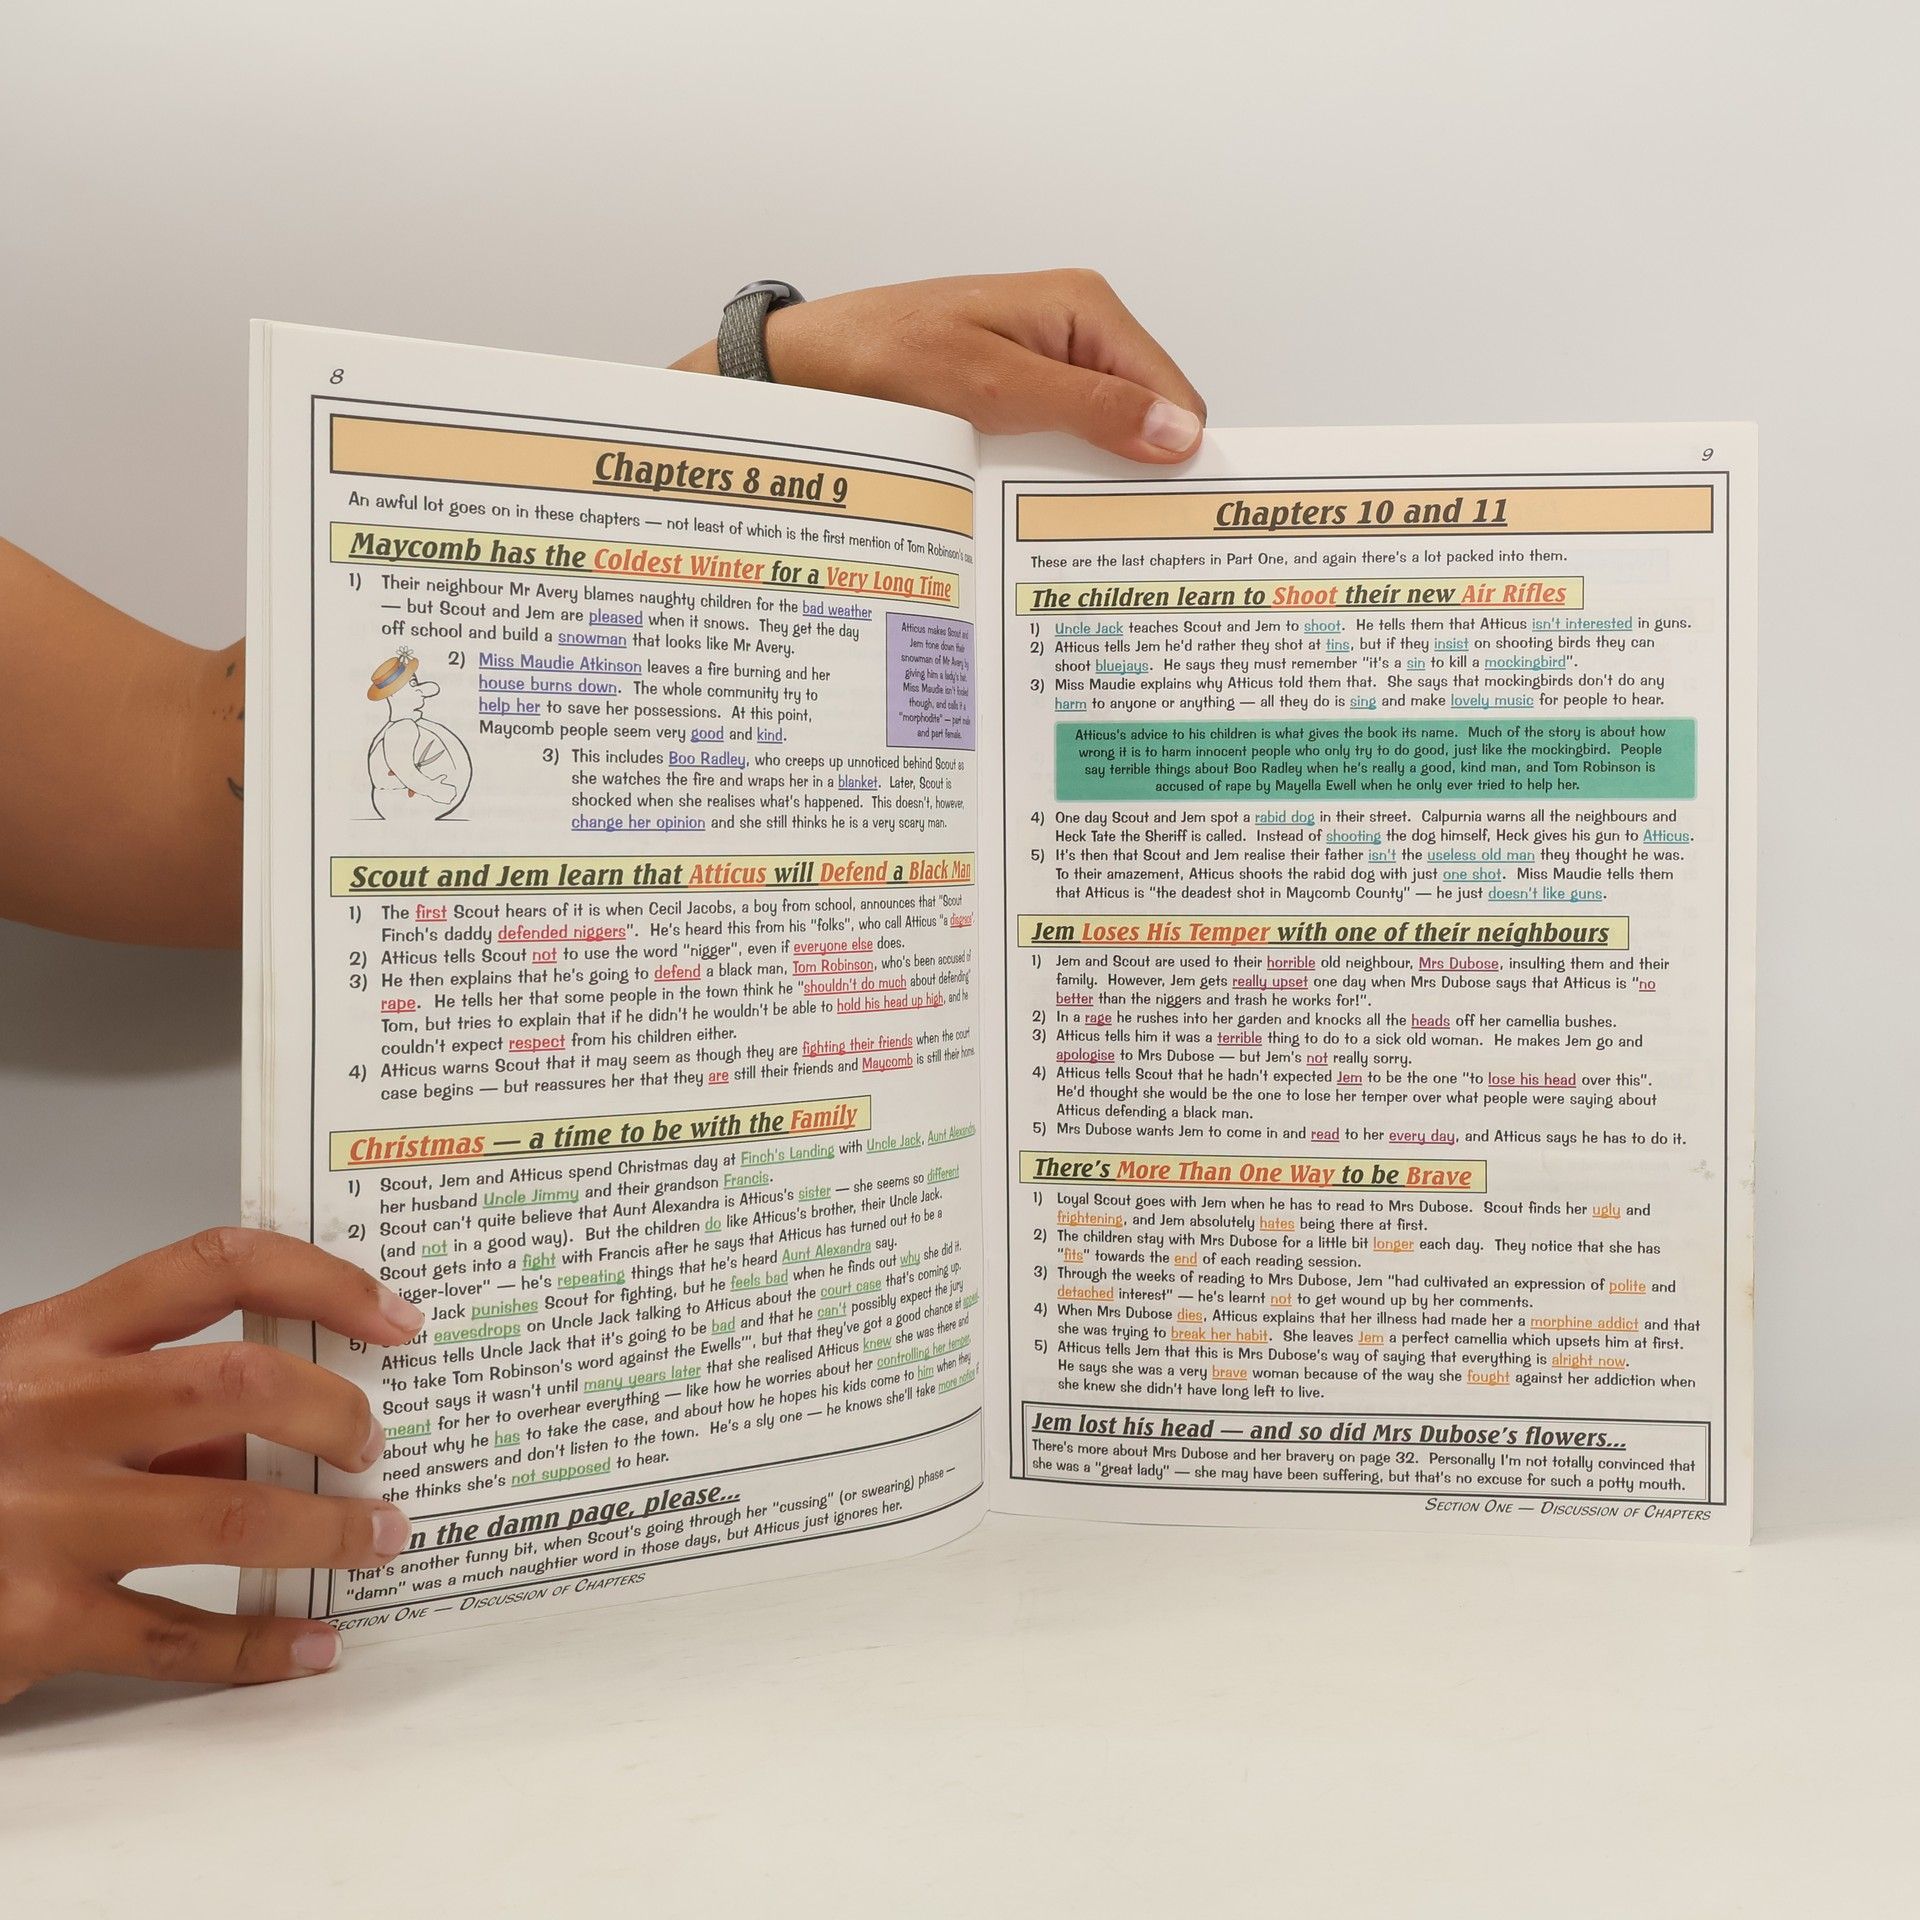 8
Chapters 8 and 9
An awful lot goes on in these chapters — not least of which is the first mention of Tom Robinson's case.
Maycomb has the Coldest Winter for a Very Long Time
1) Their neighbour Mr Avery blames naughty children for the bad weather
— but Scout and Jem are pleased when it snows. They get the day
off school and build a snowman that looks like Mr Avery.
2) Miss Maudie Atkinson leaves a fire burning and her
house burns down. The whole community try to
help her to save her possessions. At this point,
Maycomb people seem very good and kind.
3) This includes Boo Radley, who creeps up unnoticed behind Scout as
she watches the fire and wraps her in a blanket. Later, Scout is
shocked when she realises what's happened. This doesn't, however,
change her opinion and she still thinks he is a very scary man.
Atticus makes Scout and
Jem tone down their
snowman of Mr Avery by
giving him a lady's hat.
Miss Maudie isn't fooled
though, and calls it a
"morphodite" — part male
and part female.
Scout and Jem learn that Atticus will Defend a Black Man
1) The first Scout hears of it is when Cecil Jacobs, a boy from school, announces that "Scout
Finch's daddy defended niggers". He's heard this from his "folks", who call Atticus "a disgrace".
2) Atticus tells Scout not to use the word "nigger", even if everyone else does.
3) He then explains that he's going to defend a black man, Tom Robinson, who's been accused of
rape. He tells her that some people in the town think he "shouldn't do much about defending"
Tom, but tries to explain that if he didn't he wouldn't be able to hold his head up high, and he
couldn't expect respect from his children either.
4) Atticus warns Scout that it may seem as though they are fighting their friends when the court
case begins — but reassures her that they are still their friends and Maycomb is still their home.
Christmas — a time to be with the Family
1) Scout, Jem and Atticus spend Christmas day at Finch's Landing with Uncle Jack, Aunt Alexandra,
her husband Uncle Jimmy and their grandson Francis.
2) Scout can't quite believe that Aunt Alexandra is Atticus's sister — she seems so different
(and not in a good way). But the children do like Atticus's brother, their Uncle Jack.
Scout gets into a fight with Francis after he says that Atticus has turned out to be a
igger-lover" — he's repeating things that he's heard Aunt Alexandra say.
Jack punishes Scout for fighting, but he feels bad when he finds out why she did it.
5) ut eavesdrops on Uncle Jack talking to Atticus about the court case that's coming up.
Atticus tells Uncle Jack that it's going to be bad and that he can't possibly expect the jury
"to take Tom Robinson's word against the Ewells'", but that they've got a good chance at appeal.
Scout says it wasn't until many years later that she realised Atticus knew she was there and
meant for her to overhear everything — like how he worries about her controlling her temper,
about why he has to take the case, and about how he hopes his kids come to him when they
need answers and don't listen to the town. He's a sly one — he knows she'll take more notice if
she thinks she's not supposed to hear.
n the damn page, please...
That's another funny bit, when Scout's going through her "cussing" (or swearing) phase —
"damn" was a much naughtier word in those days, but Atticus just ignores her.
Section One — Discussion of Chapters
9
Chapters 10 and 11
These are the last chapters in Part One, and again there's a lot packed into them.
The children learn to Shoot their new Air Rifles
1) Uncle Jack teaches Scout and Jem to shoot. He tells them that Atticus isn't interested in guns.
2) Atticus tells Jem he'd rather they shot at tins, but if they insist on shooting birds they can
shoot bluejays. He says they must remember "it's a sin to kill a mockingbird".
3) Miss Maudie explains why Atticus told them that. She says that mockingbirds don't do any
harm to anyone or anything — all they do is sing and make lovely music for people to hear.
Atticus's advice to his children is what gives the book its name. Much of the story is about how
wrong it is to harm innocent people who only try to do good, just like the mockingbird. People
say terrible things about Boo Radley when he's really a good, kind man, and Tom Robinson is
accused of rape by Mayella Ewell when he only ever tried to help her.
4) One day Scout and Jem spot a rabid dog in their street. Calpurnia warns all the neighbours and
Heck Tate the Sheriff is called. Instead of shooting the dog himself, Heck gives his gun to Atticus.
5) It's then that Scout and Jem realise their father isn't the useless old man they thought he was.
To their amazement, Atticus shoots the rabid dog with just one shot. Miss Maudie tells them
that Atticus is "the deadest shot in Maycomb County" — he just doesn't like guns.
Jem Loses His Temper with one of their neighbours
1) Jem and Scout are used to their horrible old neighbour, Mrs Dubose, insulting them and their
family. However, Jem gets really upset one day when Mrs Dubose says that Atticus is "no
better than the niggers and trash he works for!".
2) In a rage he rushes into her garden and knocks all the heads off her camellia bushes.
3) Atticus tells him it was a terrible thing to do to a sick old woman. He makes Jem go and
apologise to Mrs Dubose — but Jem's not really sorry.
4) Atticus tells Scout that he hadn't expected Jem to be the one "to lose his head over this".
He'd thought she would be the one to lose her temper over what people were saying about
Atticus defending a black man.
5) Mrs Dubose wants Jem to come in and read to her every day, and Atticus says he has to do it.
There's More Than One Way to be Brave
1) Loyal Scout goes with Jem when he has to read to Mrs Dubose. Scout finds her ugly and
frightening, and Jem absolutely hates being there at first.
2) The children stay with Mrs Dubose for a little bit longer each day. They notice that she has
"fits" towards the end of each reading session.
3) Through the weeks of reading to Mrs Dubose, Jem "had cultivated an expression of polite and
detached interest" — he's learnt not to get wound up by her comments.
4) When Mrs Dubose dies, Atticus explains that her illness had made her a morphine addict and that
she was trying to break her habit. She leaves Jem a perfect camellia which upsets him at first.
5) Atticus tells Jem that this is Mrs Dubose's way of saying that everything is alright now.
He says she was a very brave woman because of the way she fought against her addiction when
she knew she didn't have long left to live.
Jem lost his head — and so did Mrs Dubose's flowers...
There's more about Mrs Dubose and her bravery on page 32. Personally I'm not totally convinced that
she was a "great lady" — she may have been suffering, but that's no excuse for such a potty mouth.
Section One — Discussion of Chapters